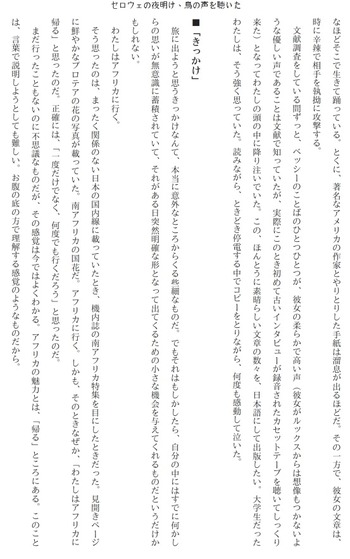 セロウェの夜明け、鳥の声を聴いた
なるほどそこで生きて踊っている、とくに、著名なアメリカの作家とやりとりした手紙は溜息が出るほどだ。その一方で、彼女の文章は、
時に辛辣で相手を執拗に攻撃する。
文献調査をしている間ずっと、ベッシーのことばのひとつひとつが、彼女の柔らかで高い声（彼女がルックスからは想像もつかないよ
うな優しい声であることは文献で知っていたが、実際にこのとき初めて古いインタビューが録音されたカセットテープを聴いてしっくり
来た）となってわたしの頭の中に降り注いでいた。この、ほんとうに素晴らしい文章の数々を、日本語にして出版したい。大学生だった
わたしは、そう強く思っていた。読みながら、ときどき停電する中でコピーをとりながら、何度も感動して泣いた。
■「きっかけ」
旅に出ようと思うきっかけなんて、本当に意外なところからくる些細なものだ。でもそれはもしかしたら、自分の中にはすでに何かし
らの思いが無意識に蓄積されていて、それがある日突然明確な形となって出てくるための小さな機会を与えてくれるものだというだけか
もしれない。
わたしはアフリカに行く。
そう思ったのは、まったく関係のない日本の国内線に載っていたとき、機内誌の南アフリカ特集を目にしたときだった。見開きページ
に鮮やかなプロテアの花の写真が載っていた。南アフリカの国花だ。アフリカに行く。しかも、そのときなぜか、「わたしはアフリカに
帰る」と思ったのだ。正確には、「一度だけでなく、何度でも行くだろう」と思ったのだ。
まだ行ったこともないのに不思議なものだが、その感覚は今ではよくわかる。アフリカの魅力とは、「帰る」ところにある。このこと
は、言葉で説明しようとしても難しい。お腹の底の方で理解する感覚のようなものだから。